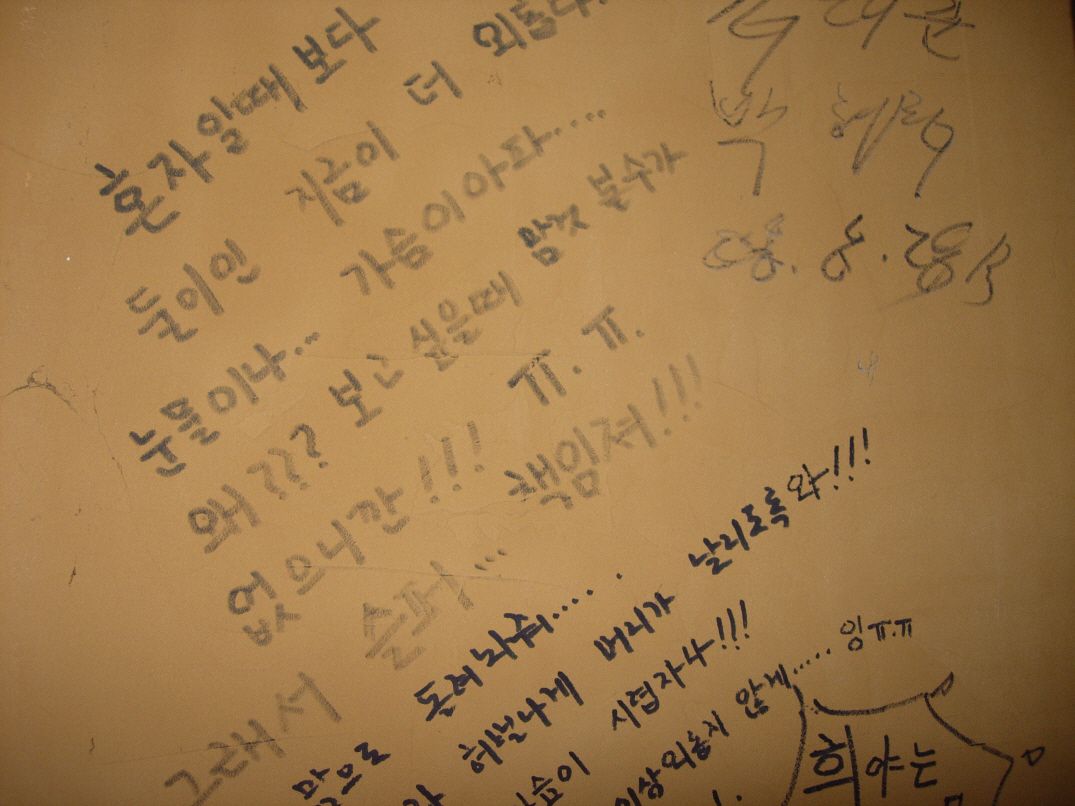 혼자 일때 보다
둘이인 지금이 더 외롭다.
눈물이나... 가슴이아다....
왜??? 보고 싶을때 맘껏 볼수가
없으니깐!!! ㅠ.ㅠ.
그래서 슬퍼... 책임져!!!
맘으로 돌려놔줘.....
허벌나게 머리가 날리도록와!!!
시렵자나!!!
이상외롭지 않게..... 잉ㅠ.ㅠ
희야는
박 혜락